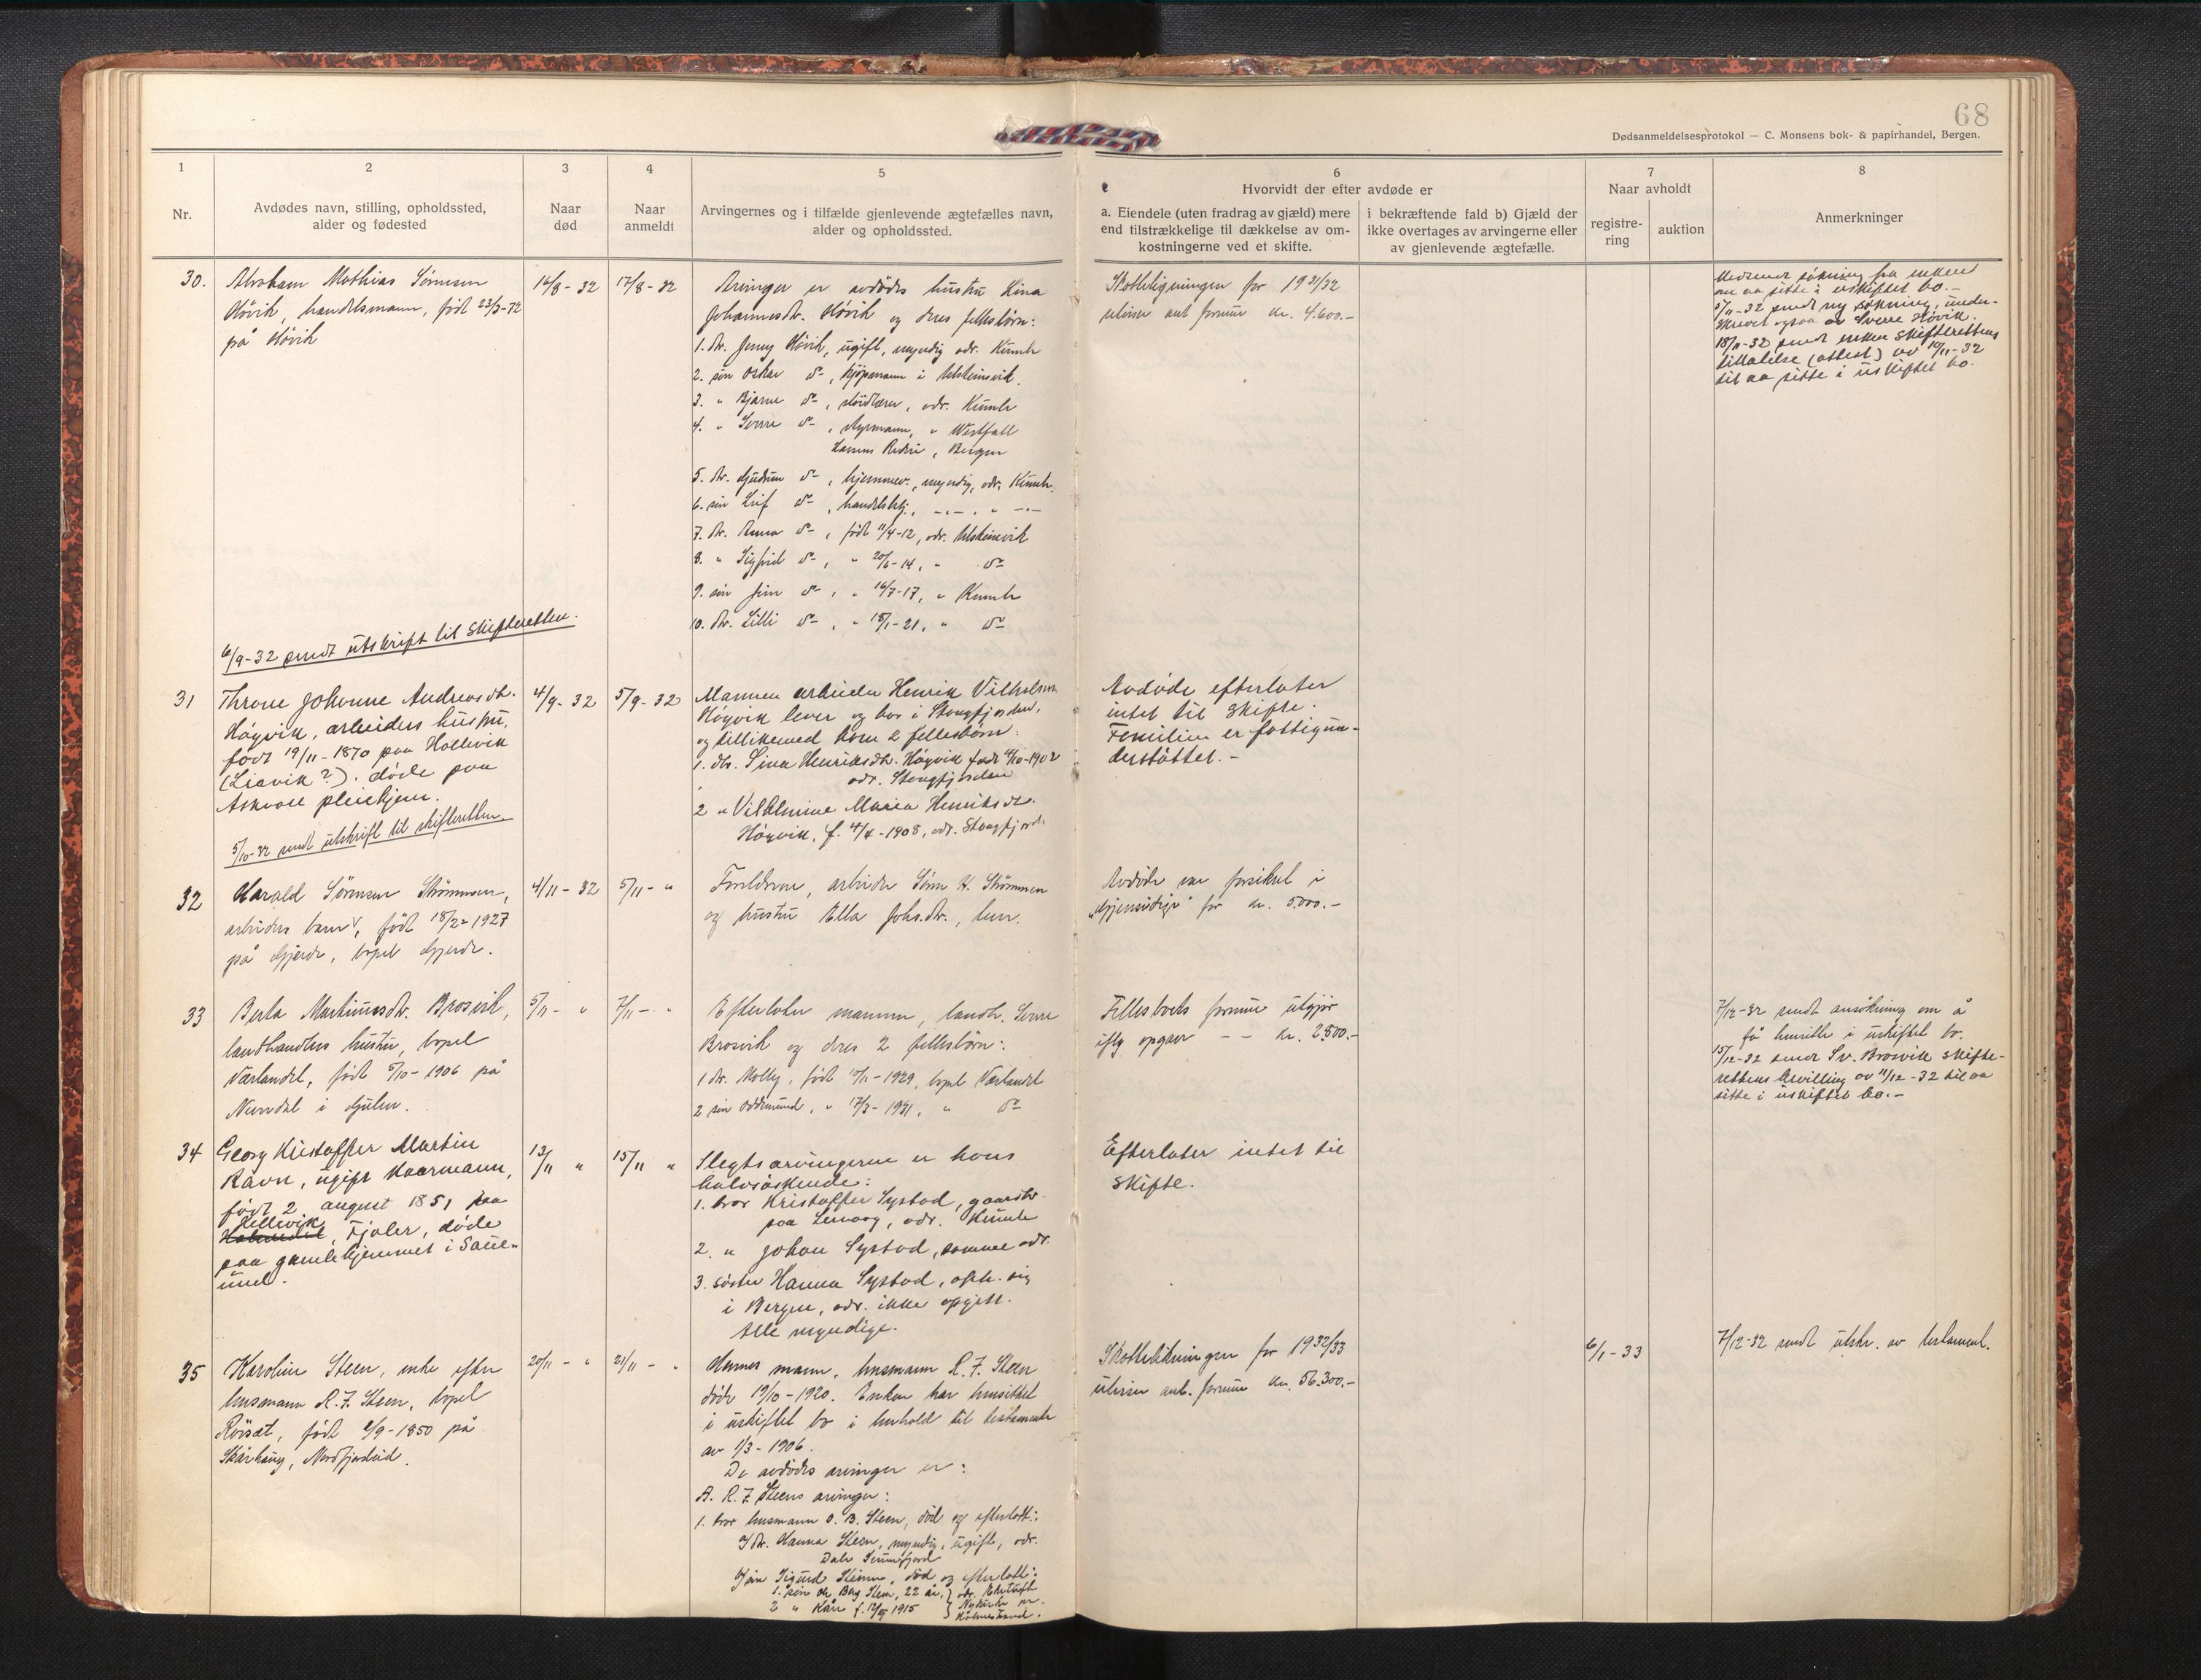 68
Dødsanmeldelsesprotokol — C. Monsens bok- & papirhandel, Bergen.
1
2
3
4
5
6
7
8
Nr.
Avdødes navn, stilling, opholdssted,
alder og fødested
Naar
død
Naar
anmeldt
Arvingernes og i tilfælde gjenlevende ægtefælles navn,
alder og opholdssted.
Hvorvidt der efter avdøde er
a. Eiendele (uten fradrag av gjæld) mere
end tilstrækkelige til dækkelse av om-
kostningerne ved et skifte.
i bekræftende fald b) Gjæld der
ikke overtages av arvingerne eller
av gjenlevende ægtefælle.
Naar avholdt
registre-
ring
auktion
Anmerkninger
30.
Abraham Mathias Sørensen
Høvik, handelsmann, født 23/3-72
på Høvik
16/8-32
17/8-32
Arvinger er avdødes hustru Lina
Johannesdtr. Høvik og deres fellesbørn:
1. dtr. Jenny Høvik, ugift, myndig adr. Kumle
2. søn Oskar do, kjøpmann i Ulsteinvik.
3. " Bjarne do, sløidlærer, adr. Kumle
4. " Sverre do, styrmann, " Westfall
Larsens Rederi, Bergen
5. dtr. Gudrun do, hjemmev., myndig, adr. Kumle.
6. søn Leif do, handelsbtj., -.-. " -.-
7. dtr. Anna do, født 11/4-12, adr. Ulsteinvik
8. " Sigfrid do, " 20/6-14, " do
9. søn Finn do, " 16/7-17, " Kumle
10. dtr. Lilli do, " 15/1-21, " do
Skatteligningen for 1931/32
utviser ant. formue kr. 4.600.-
søkning fra enken
om aa sitte i uskiftet bo.-
5/11-32 sendt ny søkning, under-
skrevet ogsaa av Sverre Høvik.
18/11-32 sendt enken Skifterettens
tillatelse (attest) av 10/11-32
til aa sitte i uskiftet bo.
6/9-32 sendt utskrift til Skifteretten.
31
Throne Johanne Andreasdtr.
Høyvik, arbeiders hustru,
født 19/11-1870 paa Hollevik
(Lisvik?). døde paa
Askvoll pleiehjem.
4/9-32
5/9-32
Mannen arbeider Henrik Vilhelmsen
Høyvik lever og bor i Stongfjorden,
og tillikemed ham 2 fellesbørn:
1. dtr. Sina Henriksdtr. Høyvik født 4/10-1902
adr. Stongfjorden
2 " Vilhelmine Marea Henriksdtr.
Høyvik, f. 4/4-1908, adr. Stongfjord.
Avdøde efterlater
intet til Skifte.
Familien er fattigun-
derstøttet.-
5/10-32 sendt utskrift til skifteretten.
32
Harald Sørensen Strømmen,
arbeiders barn, født 18/2-1927
på Gjerde, bopel Gjerde.
4/11-32
5/11- "
Foreldrene, arbeider Søren H. Strømmen
og hustru Ella Johs.dtr., lever.
Avdøde var forsikret i
"Gjensidige" for kr. 5.000.-
33
Berta Martinusdtr. Brosvik,
landhandlers hustru, bopel
Værlandet, født 5/10-1906 på
Nundal i Gulen.
5/11- "
7/11- "
Efterlater mannen, landh. Sverre
Brosvik og deres 2 fellesbørn:
1 dtr. Molly, født 17/11-1929, bopel Værlandet
2 søn Oddmund, " 17/3-1931, " do
Fellesboets formue utgjør
iflg opgave - - kr. 2500.-
7/12-32 sendt ansøkning om å
få hensitte i uskiftet bo.
15/12-32 sendt Sv. Brosvik skifte-
rettens bevilling av 11/12-32 til aa
sitte i uskiftet bo.-
34
Georg Kristoffer Martin
Ravn, ugift kaarmann,
født 2. august 1851 paa
Hellevik, Fjaler, døde
paa gamlehjemmet i Saue-
sund.
13/11 "
15/11 "
Slegtsarvingerne er hans
halvsøskende:
1. bror Kristoffer Systad, gaardbr.
paa Lervaag, adr. Kumle
2. " Johan Systad, samme adr.
3. søster Hanna Systad, oph. sig
i Bergen, adr. ikke opgitt.
Alle myndige.
Efterlater intet til
Skifte.
35
Karoline Steen, enke efter
husmann R. F. Steen, bopel
født 2/9-1850 på
Skårhaug, Nordfjordeid.
20/11- "
21/11- "
Hennes mann, husmann R. F. Steen
døde 19/10-1920. Enken har hensittet
i uskiftet bo i henhold til testamente
av 1/3-1906.
De avdødes arvinger er:
A. R. F. Steens arvinger:
1. bror husmann O. B. Steen, død og efterlatt:
a/ dtr. Hanna Steen, myndig, ugift, adr.
Dale Sunnfjord
b/ søn Sigurd Steen, død og efterlatt:
1. søn Berg Steen, 22 år,
2 " Kåre f. 1915
adr.
Nykirke pr.
Holmestrand.
Skatteligningen for 1932/33
utviser ant. formue kr. 56.300.-
6/1-33
7/12-32 sendt utskr. av testament.